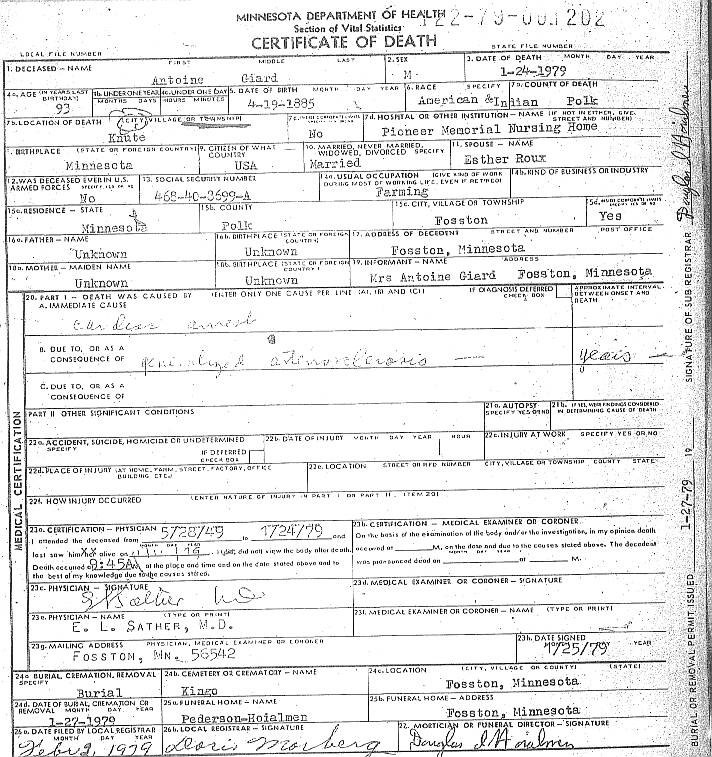 MINNESOTA DEPARTMENT OF HEALTH
Section of Vital Statistics
CERTIFICATE OF DEATH
LOCAL FILE NUMBER STATE FILE NUMBER
1. DECEASED – NAME FIRST MIDDLE LAST 2. SEX 3. DATE OF DEATH MONTH DAY YEAR
Antoine Giard M 1-24-1979
4a. AGE (IN YEARS LAST BIRTHDAY) 4b. UNDER ONE YEAR 4c. UNDER ONE DAY 5. DATE OF BIRTH MONTH DAY YEAR 6. RACE SPECIFY 7a. COUNTY OF DEATH
MONTHS DAYS HOURS MINUTES
93 4-19-1885 American & Indian Polk
7b. LOCATION OF DEATH (CITY, VILLAGE OR TOWNSHIP) 7d. HOSPITAL OR OTHER INSTITUTION – NAME (IF NOT IN EITHER, GIVE STREET AND NUMBER)
Knute No Pioneer Memorial Nursing Home
8. BIRTHPLACE (STATE OR FOREIGN COUNTRY) 9. CITIZEN OF WHAT COUNTRY 10. MARRIED, NEVER MARRIED, WIDOWED, DIVORCED SPECIFY 11. SPOUSE – NAME
Minnesota USA Married Esther Roux
12. WAS DECEASED EVER IN U.S. ARMED FORCES SPECIFY YES OR NO 13. SOCIAL SECURITY NUMBER 14a. USUAL OCCUPATION (GIVE KIND OF WORK DURING MOST OF WORKING LIFE, EVEN IF RETIRED) 14b. KIND OF BUSINESS OR INDUSTRY
No 468-40-3699-A Farming
15a. RESIDENCE – STATE 15b. COUNTY 15c. CITY, VILLAGE OR TOWNSHIP
Minnesota Polk Fosston Yes
16a. FATHER – NAME 16b. BIRTHPLACE (STATE OR FOREIGN COUNTRY) 17. ADDRESS OF DECEDENT STREET AND NUMBER POST OFFICE
Unknown Unknown Fosston, Minnesota
18a. MOTHER – MAIDEN NAME 18b. BIRTHPLACE (STATE OR FOREIGN COUNTRY) 19. INFORMANT – NAME ADDRESS
Unknown Unknown Mrs Antoine Giard Fosston, Minnesota
20. PART I – DEATH WAS CAUSED BY (ENTER ONLY ONE CAUSE PER LINE (A), (B) AND (C)) IF DIAGNOSIS DEFERRED CHECK BOX APPROXIMATE INTERVAL BETWEEN ONSET AND DEATH
A. IMMEDIATE CAUSE
cardiac arrest
B. DUE TO, OR AS A CONSEQUENCE OF generalized atherosclerosis — years —
C. DUE TO, OR AS A CONSEQUENCE OF
PART II OTHER SIGNIFICANT CONDITIONS 21a. AUTOPSY SPECIFY YES OR NO 21b. IF YES, WERE FINDINGS CONSIDERED IN DETERMINING CAUSE OF DEATH
22a. ACCIDENT, SUICIDE, HOMICIDE OR UNDETERMINED SPECIFY IF DEFERRED CHECK BOX 22b. DATE OF INJURY MONTH DAY YEAR HOUR 22c. INJURY AT WORK SPECIFY YES OR NO
22d. PLACE OF INJURY (AT HOME, FARM, STREET, FACTORY, OFFICE BUILDING ETC.) 22e. LOCATION STREET OR RFD NUMBER CITY, VILLAGE OR TOWNSHIP COUNTY STATE
22f. HOW INJURY OCCURRED (ENTER NATURE OF INJURY IN PART I OR PART II, ITEM 20)
MEDICAL CERTIFICATION
23a. CERTIFICATION – PHYSICIAN 5/28/49 to 1/24/79 and
I attended the deceased from
last saw him/her alive on did not view the body after death.
Death occured 9:45A M. at the place and time and on the date stated above and to
the best of my knowledge due to the causes stated.
23b. CERTIFICATION – MEDICAL EXAMINER OR CORONER
On the basis of the examination of the body and/or the investigation, in my opinion death
occurred at M., on the date and due to the causes stated above. The decedent
was pronounced dead on at M.
23c. PHYSICIAN – SIGNATURE 23d. MEDICAL EXAMINER OR CORONER – SIGNATURE
23e. PHYSICIAN – NAME (TYPE OR PRINT) 23f. MEDICAL EXAMINER OR CORONER – NAME (TYPE OR PRINT)
E. L. SATHER, M.D.
23g. MAILING ADDRESS PHYSICIAN, MEDICAL EXAMINER OR CORONER 23h. DATE SIGNED YEAR
FOSSTON, MN. 56542 1/25/79
24a. BURIAL, CREMATION, REMOVAL SPECIFY 24b. CEMETERY OR CREMATORY – NAME 24c. LOCATION (CITY, VILLAGE OR COUNTY) (STATE)
Burial Kingo Fosston, Minnesota
24d. DATE OF BURIAL, CREMATION OR REMOVAL MONTH DAY YEAR 25a. FUNERAL HOME – NAME 25b. FUNERAL HOME – ADDRESS
1-27-1979 Pederson-Hoialmen Fosston, Minnesota
26a. DATE FILED BY LOCAL REGISTRAR MONTH DAY YEAR 26b. LOCAL REGISTRAR – SIGNATURE 27. MORTICIAN OR FUNERAL DIRECTOR – SIGNATURE
Feb 2, 1979 Doris Morberg Douglas J Hoialmen
BURIAL OR REMOVAL PERMIT ISSUED 1-27-79 19 SIGNATURE OF SUB REGISTRAR Douglas J Hoialmen